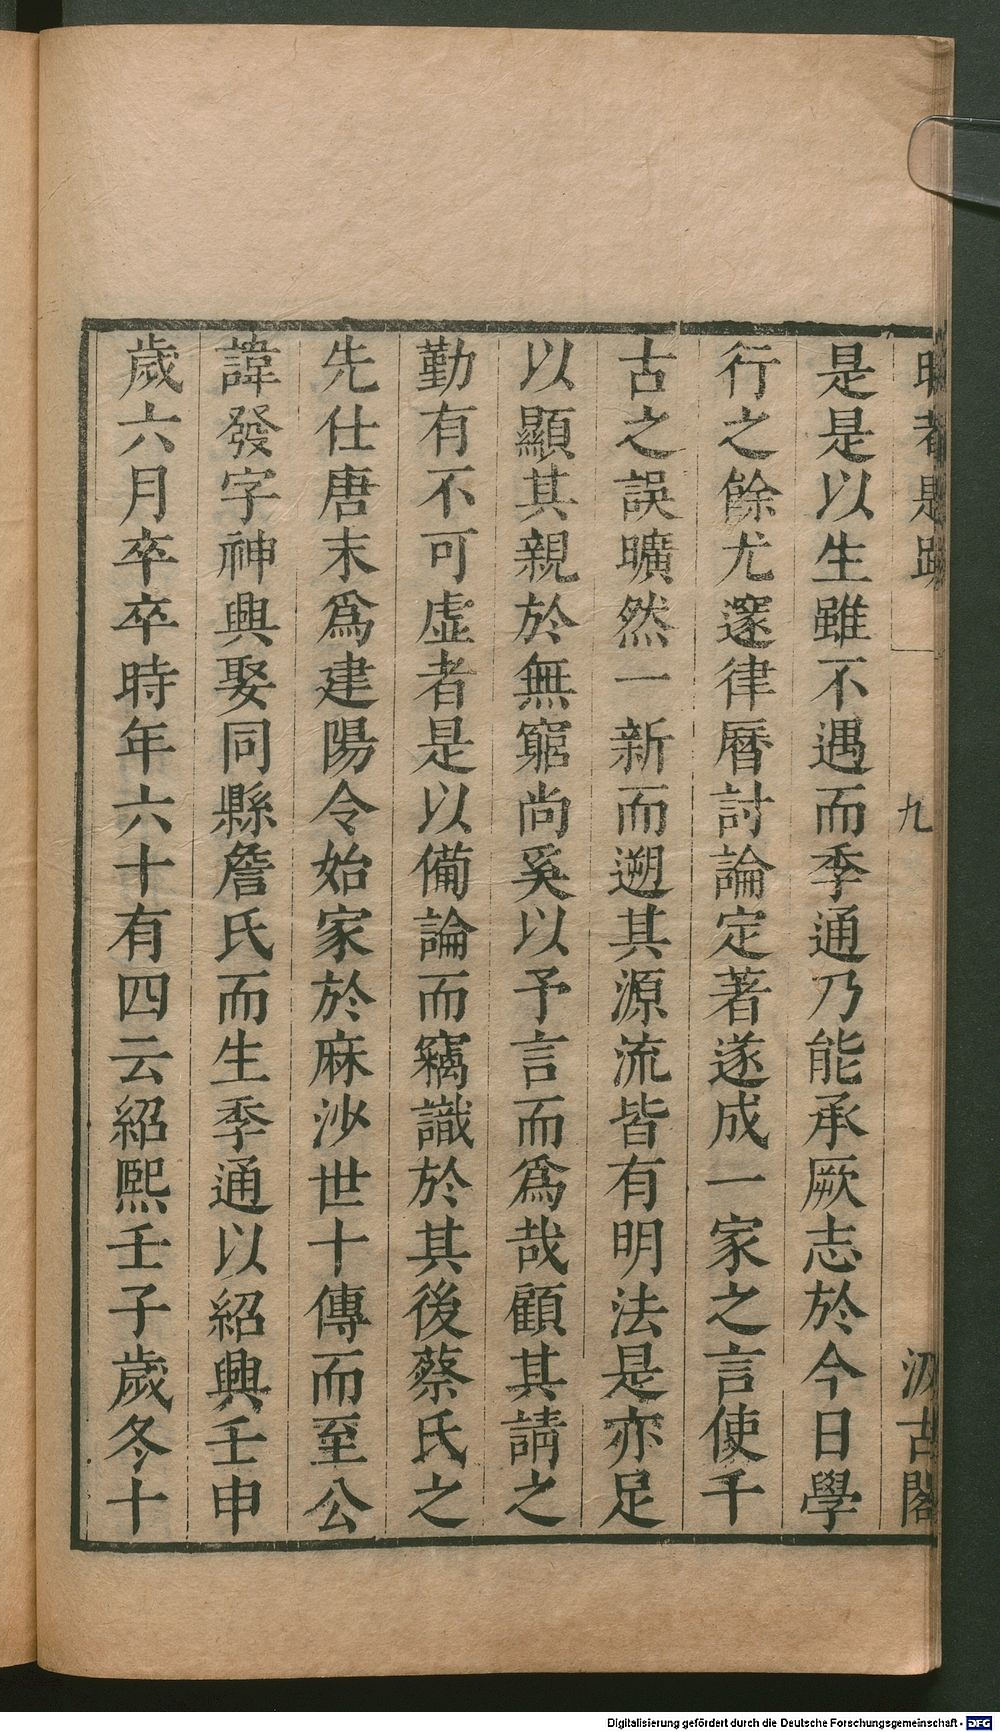 晦菴題跋 九 汲古閣
是是以生雖不遇而季通乃能承厥志於今日學
行之餘尤邃律曆討論定著遂成一家之言使千
古之誤曠然一新而遡其源流皆有明法是亦足
以顯其親於無窮尚奚以予言而爲哉顧其請之
勤有不可虛者是以備論而竊識於其後蔡氏之
先仕唐末爲建陽令始家於麻沙世十傳而至公
諱發字神興娶同縣詹氏而生季通以紹興壬申
歲六月卒卒時年六十有四云紹熙壬子歲冬十
Digitalisierung gefördert durch die Deutsche Forschungsgemeinschaft - DFG